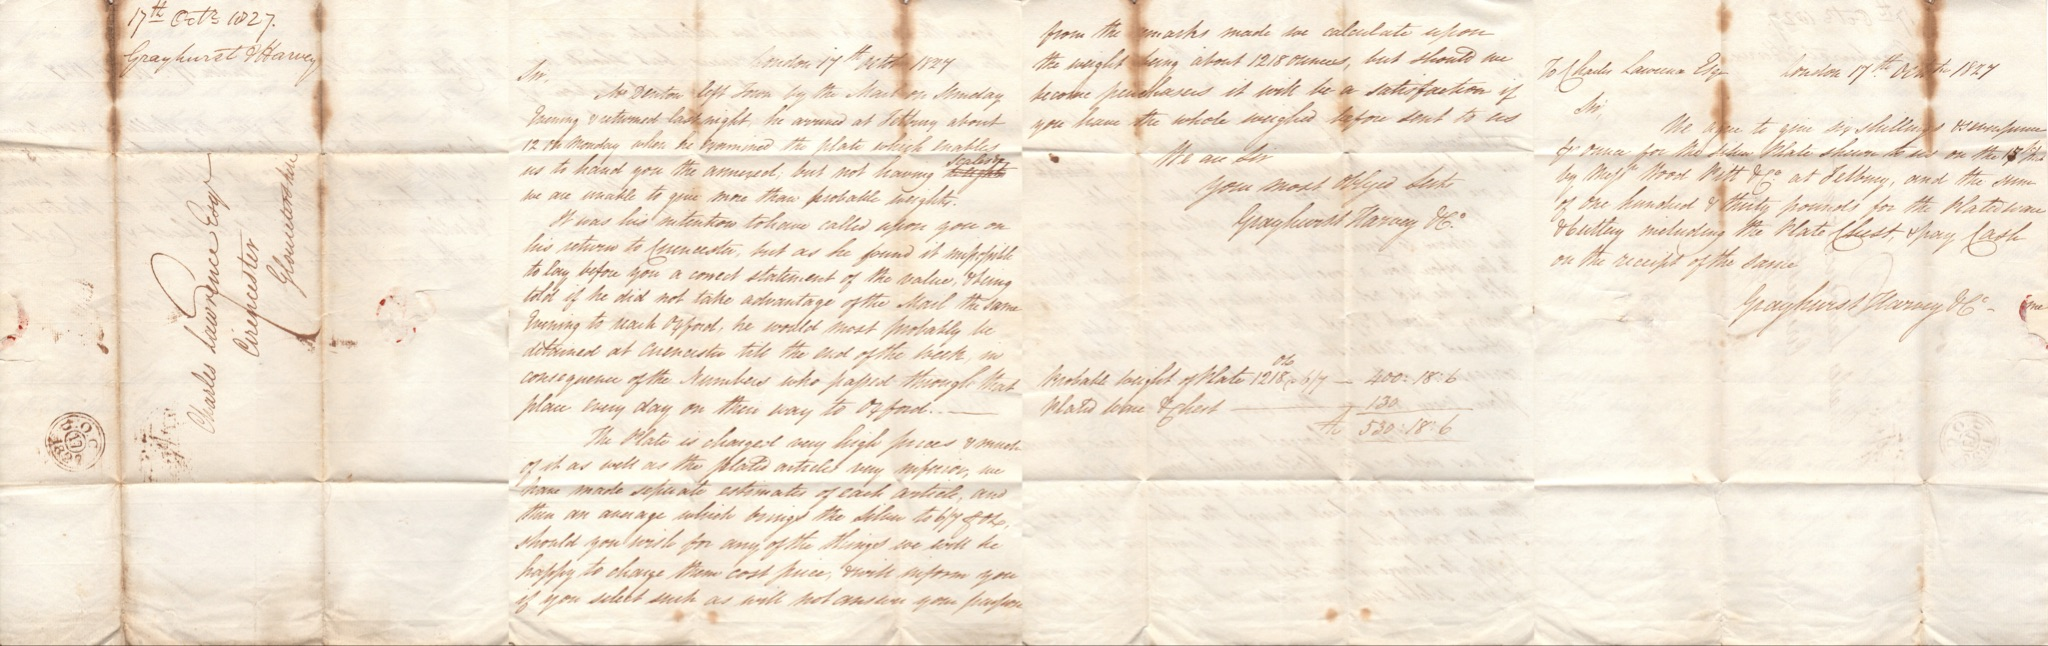 17th Octr 1827.
Grayhurst & Harvey
Charles Lawrence Esqr
Cirencester
Gloucestershire
London 17th Octr 1827
Sir,
Mr Denton left Town by the Mail on Sunday
Evening & returned last night, he arrived at Tetbury about
12 on Monday when he examined the plate which enables
us to hand you the annexed, but not having Scales &
we are unable to give more than probable weights.
It was his intention to have called upon you on
his return to Cirencester, but as he found it impossible
to lay before you a correct statement of the value, & being
told if he did not take advantage of the Mail the same
Evening to reach Oxford, he would most probably be
detained at Cirencester till the end of the week, in
consequence of the Numbers who passed through that
place every day on their way to Oxford. —
The Plate is charged very high prices & much
of it as well as the plated articles very inferior, we
have made seperate estimates of each article, and
then an average which brings the silver to 6/7 pr oz,
should you wish for any of the things we will be
happy to charge them cost price, & will inform you
if you select such as will not answer your purpose
from the remarks made we calculate upon
the weight being about 1218 ounces, but should we
become purchasers it will be a satisfaction if
you have the whole weighed before sent to us
We are Sir
Your most Obliged Servts
Grayhurst Harvey & Co
Probable weight of Plate 1218 oz @ 6/7 — 400:18:6
Plated Ware & Chest — 130
£ 530:18:6
To Charles Lawrence Esqr London 17th Octr 1827
Sir,
We agree to give six shillings & sevenpence
pr ounce for the silver Plate shewn to us on the 15 Inst
by Messrs Wood Pitt & Co at Tetbury, and the sum
of one hundred & thirty pounds for the Plated Ware
& Cutlery including the Plate Chest, & pay Cash
on the receipt of the same
Grayhurst Harvey & Co